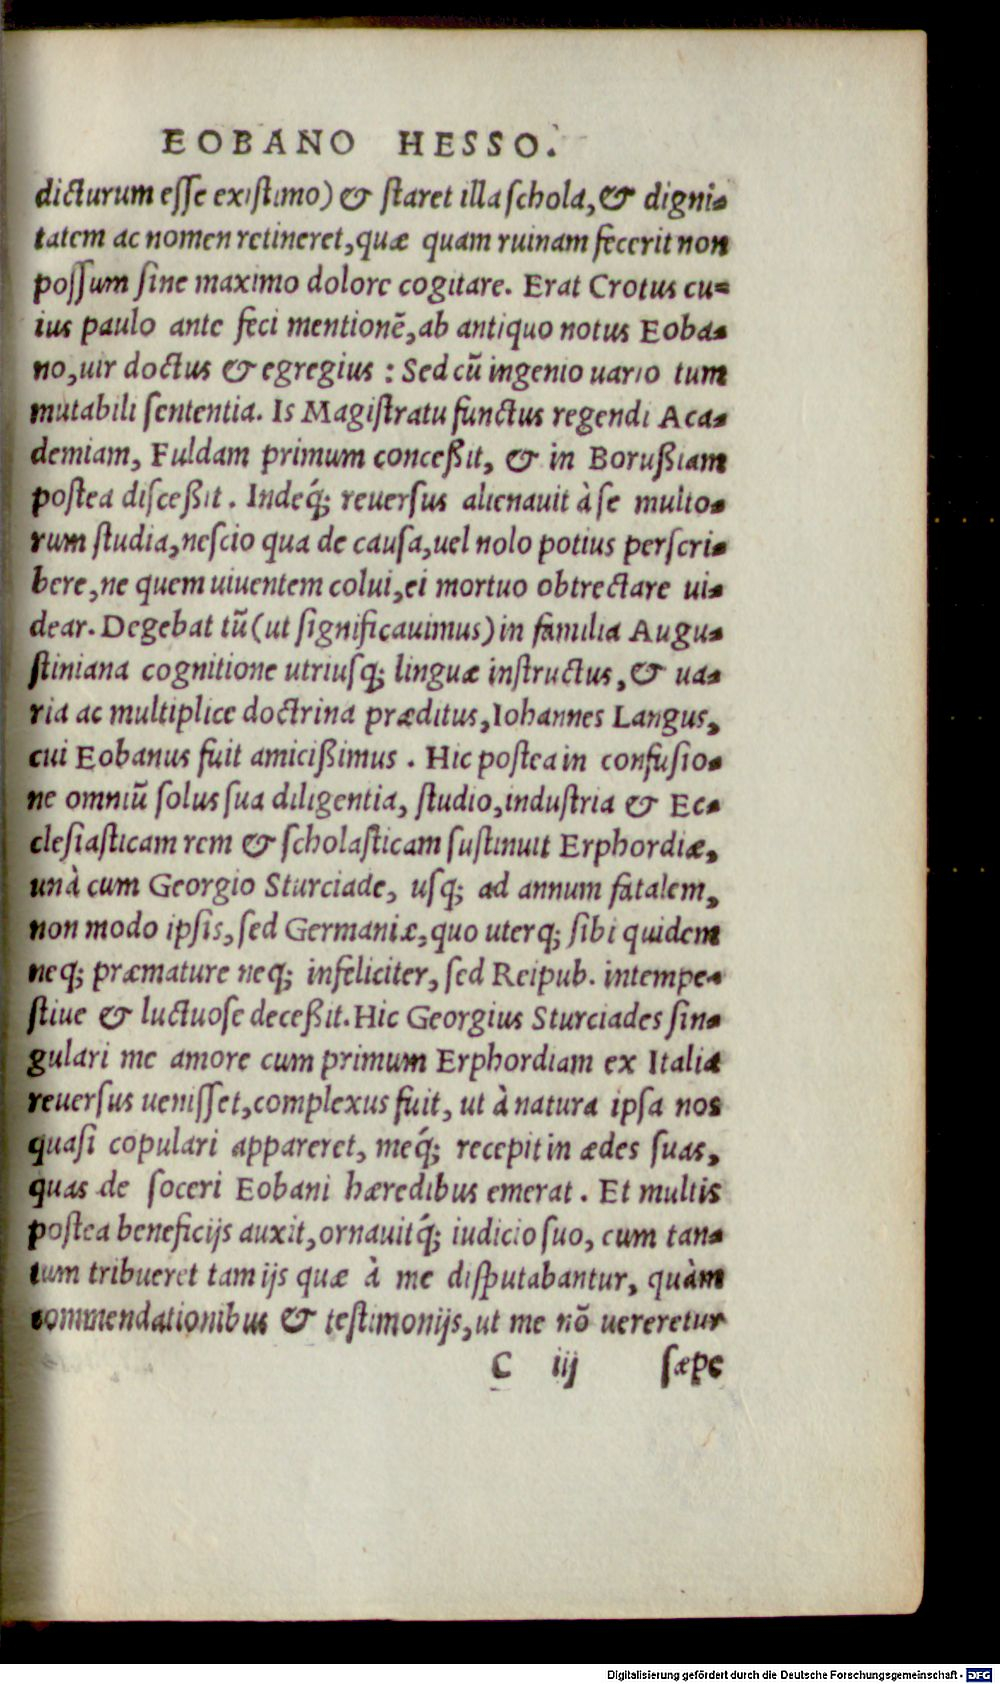 EOBANO HESSO.
dicturum esse existimo) & staret illa schola, & digni-
tatem ac nomen retineret, quæ quam ruinam fecerit non
possum sine maximo dolore cogitare. Erat Crotus cu-
ius paulo ante feci mentionẽ, ab antiquo notus Eoba-
no, uir doctus & egregius : Sed cũ ingenio uario tum
mutabili sententia. Is Magistratu functus regendi Aca-
demiam, Fuldam primum conceßit, & in Borußiam
postea disceßit. Indeq́; reuersus alienauit à se multo-
rum studia, nescio qua de causa, uel nolo potius perscri-
bere, ne quem uiuentem colui, ei mortuo obtrectare ui-
dear. Degebat tũ (ut significauimus) in familia Augu-
stiniana cognitione utriusq; linguæ instructus, & ua-
ria ac multiplice doctrina præditus, Iohannes Langus,
cui Eobanus fuit amicißimus. Hic postea in confusio-
ne omniũ solus sua diligentia, studio, industria & Ec-
clesiasticam rem & scholasticam sustinuit Erphordiæ,
unà cum Georgio Sturciade, usq; ad annum fatalem,
non modo ipsis, sed Germaniæ, quo uterq; sibi quidem
neq; præmature neq; infeliciter, sed Reipub. intempe-
stiue & luctuose deceßit. Hic Georgius Sturciades sin-
gulari me amore cum primum Erphordiam ex Italia
reuersus uenisset, complexus fuit, ut à natura ipsa nos
quasi copulari appareret, meq́; recepit in ædes suas,
quas de soceri Eobani hæredibus emerat. Et multis
postea beneficijs auxit, ornauitq́; iudicio suo, cum tan-
tum tribueret tam ijs quæ à me disputabantur, quàm
commendationibus & testimonijs, ut me nõ uereretur
C iij sæpe
Digitalisierung gefördert durch die Deutsche Forschungsgemeinschaft - DFG